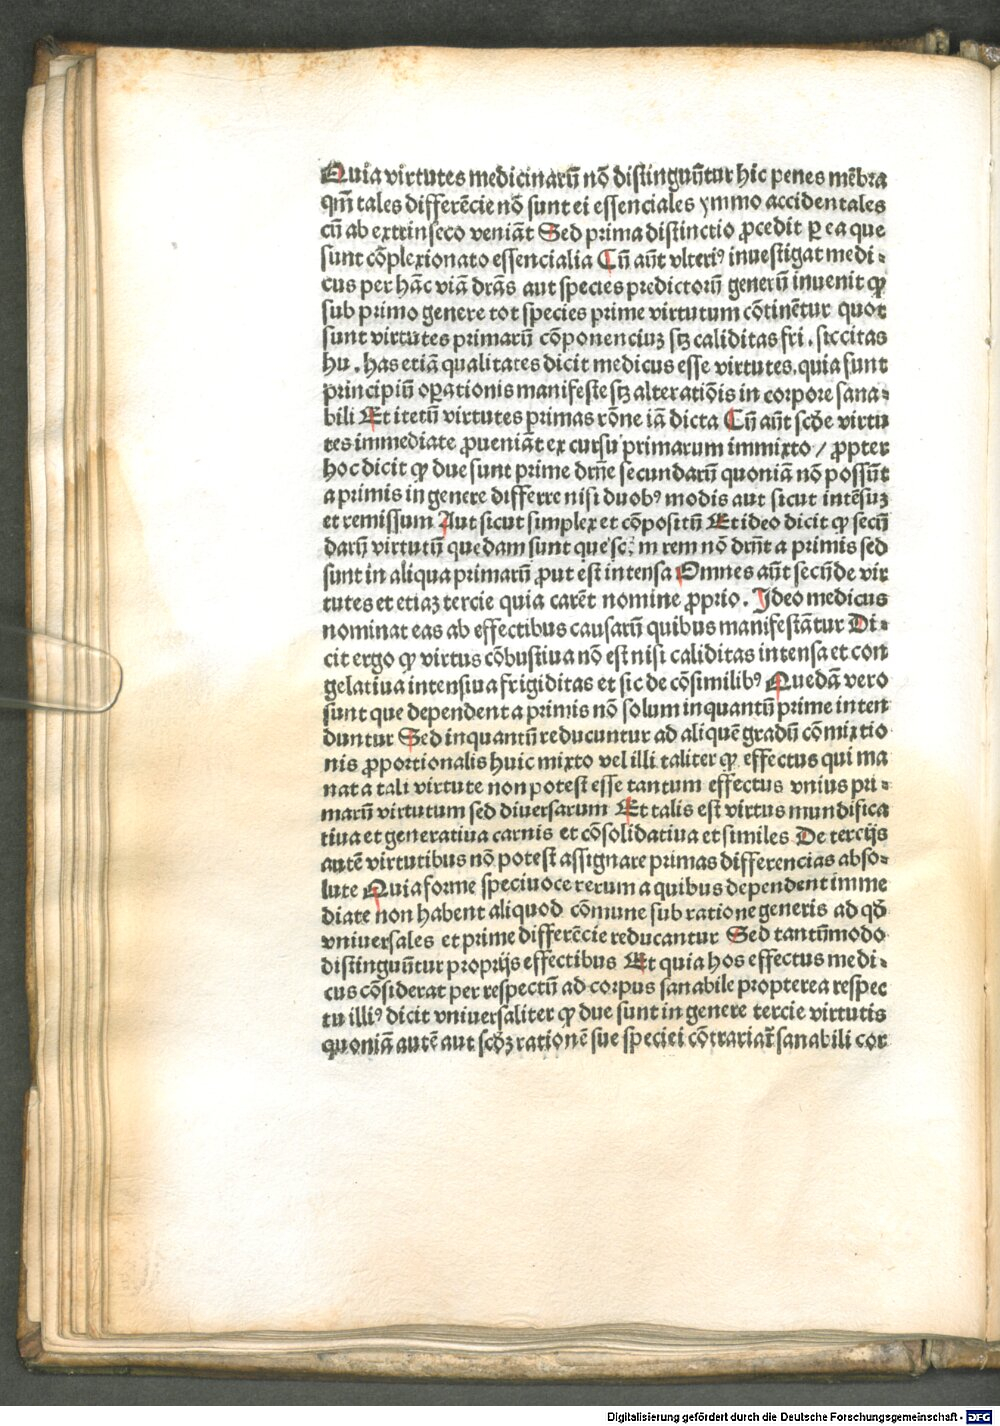 Quia virtutes medicinarū nō distinguūtur hic penes mēbra
qm̄ tales differēcie nō sunt ei essenciales ymmo accidentales
cū ab extrinseco veniāt Sed prima distinctio ꝓcedit ꝑ ea que
sunt cōplexionato essencialia Cū aūt vlteriꝰ inuestigat medi⸗
cus per hāc viā drās aut species predictorū generū inuenit ꝙ
sub primo genere tot species prime virtutum cōtinētur quot
sunt virtutes primarū cōponenciuꝫ sꝫ caliditas fri . siccitas
hu . has etiā qualitates dicit medicus esse virtutes. quia sunt
principiū oꝑationis manifeste sꝫ alteratiōis in corpore sana⸗
bili Et itetū virtutes primas rōne iā dicta Cū aūt scd̄e virtu
tes immediate ꝓueniāt ex cursu primarum immixto / ꝓpter
hoc dicit ꝙ due sunt prime drn̄e secundarū quoniā nō possūt
a primis in genere differre nisi duobꝰ modis aut sicut intēsuꝫ
et remissum Aut sicut simplex et cōpositū Et ideo dicit ꝙ secū
darū virtutū quedam sunt que sc m rem nō drn̄t a primis sed
sunt in aliqua primarū ꝓut est intensa Omnes aūt secūde vir
tutes et etiaꝫ tercie quia carēt nomine ꝓprio . Ideo medicus
nominat eas ab effectibus causarū quibus manifestātur Di⸗
cit ergo ꝙ virtus cōbustiua nō est nisi caliditas intensa et con
gelatiua intensiua frigiditas et sic de cōsimilibꝰ Quedā vero
sunt que dependent a primis nō solum inquantū prime inten
duntur Sed inquantū reducuntur ad aliquē gradū cōmixtio
nis ꝓportionalis huic mixto vel illi taliter ꝙ effectus qui ma
nat a tali virtute non potest esse tantum effectus vnius pri⸗
marū virtutum sed diuersarum Et talis est virtus mundifica
tiua et generatiua carnis et cōsolidatiua et similes De tercijs
autē virtutibus nō potest assignare primas differencias abso⸗
lute Quia forme speciuoce rerum a quibus dependent imme
diate non habent aliquod cōmune sub ratione generis ad qd̄
vniuersales et prime differēcie reducantur Sed tantūmodo
distinguūtur proprijs effectibus Et quia hos effectus medi⸗
cus cōsiderat per respectū ad corpus sanabile propterea respec
tu illiꝰ dicit vniuersaliter ꝙ due sunt in genere tercie virtutis
quoniā autē aut scd̄ꝫ rationē sue speciei cōtrariat̄ sanabili cor
Digitalisierung gefördert durch die Deutsche Forschungsgemeinschaft - DFG